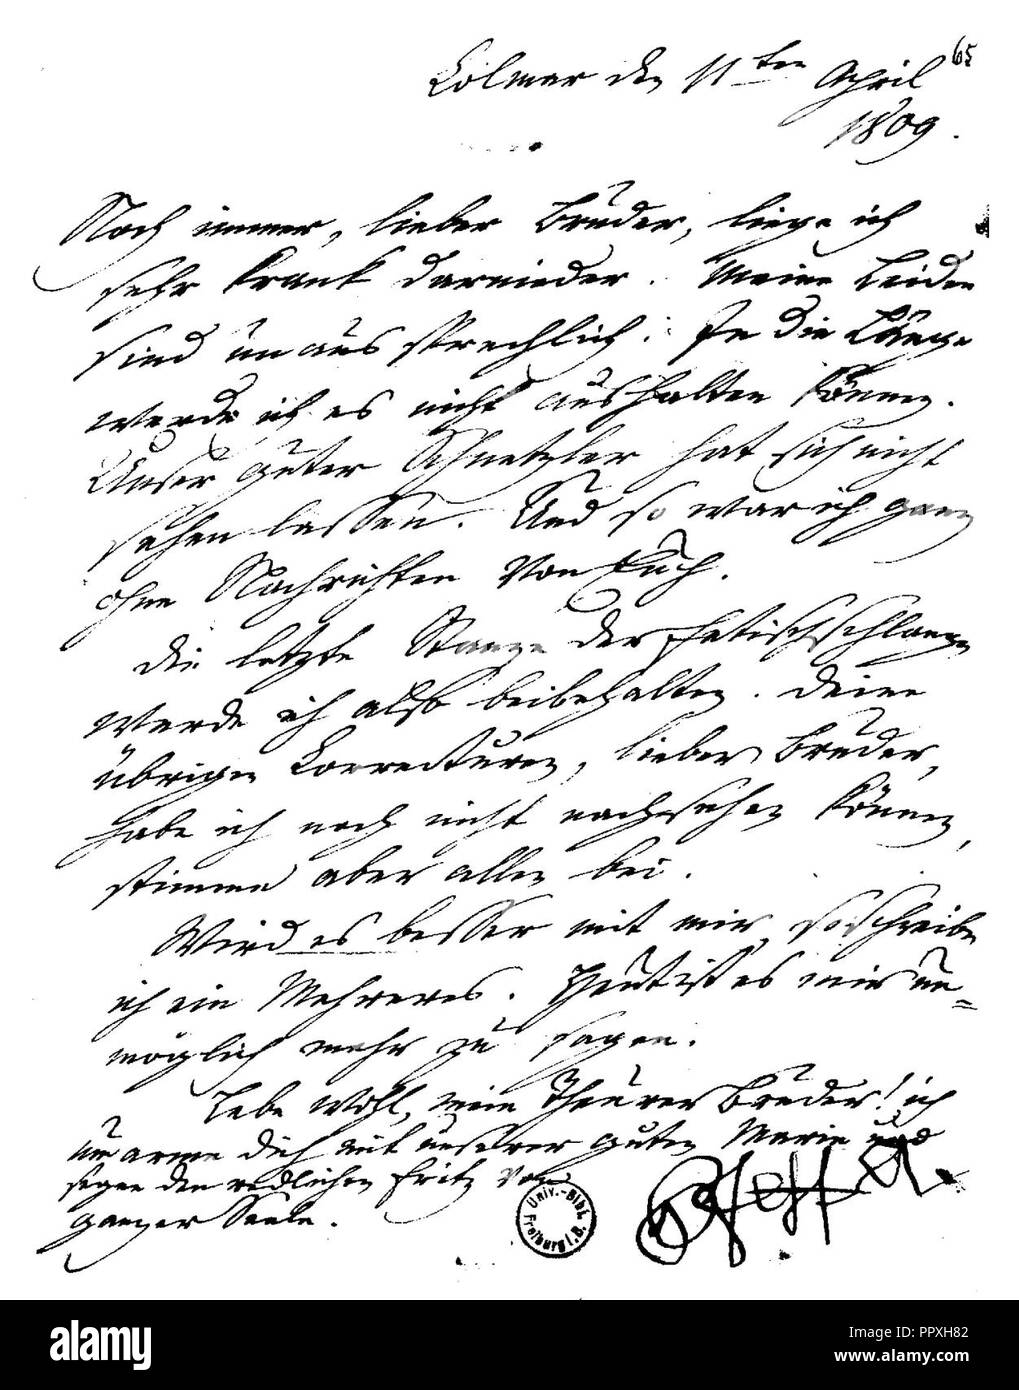 65
Colmar den 11ten April
1809.
Noch immer, lieber Bruder, liege ich
sehr krank darnieder. Meine Leiden
sind unaussprechlich. In die Länge
werde ich es nicht aushalten können.
Unser guter Schnetzler hat sich nicht
sehen lassen. Und so war ich ganz
ohne Nachrichten von Euch.
Die letzte Stanze der Fetischschlange
werde ich also beibehalten. Deine
übrigen Correcturen, lieber Bruder,
habe ich noch nicht nachsehen können,
stimme aber allen bei.
Wird es besser mit mir, so schreibe
ich ein Mehreres. Heut ist es mir un=
möglich mehr zu sagen.
Lebe wohl, mein theurer Bruder! ich
umarme dich mit unserer guten Marie und
segne den redlichen Fritz von
ganzer Seele.
Pfeffel.
Univ.-Bibl.
Freiburg i. B.
alamy
Image ID: PPXH82
www.alamy.com